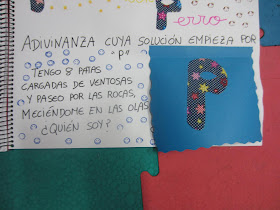 P
erro
ADIVINANZA CUYA SOLUCIÓN EMPIEZA POR
"P"
TENGO 8 PATAS
CARGADAS DE VENTOSAS
Y PASEO POR LAS ROCAS,
MECIÉNDOME EN LAS OLAS
¿QUIÉN SOY?
P